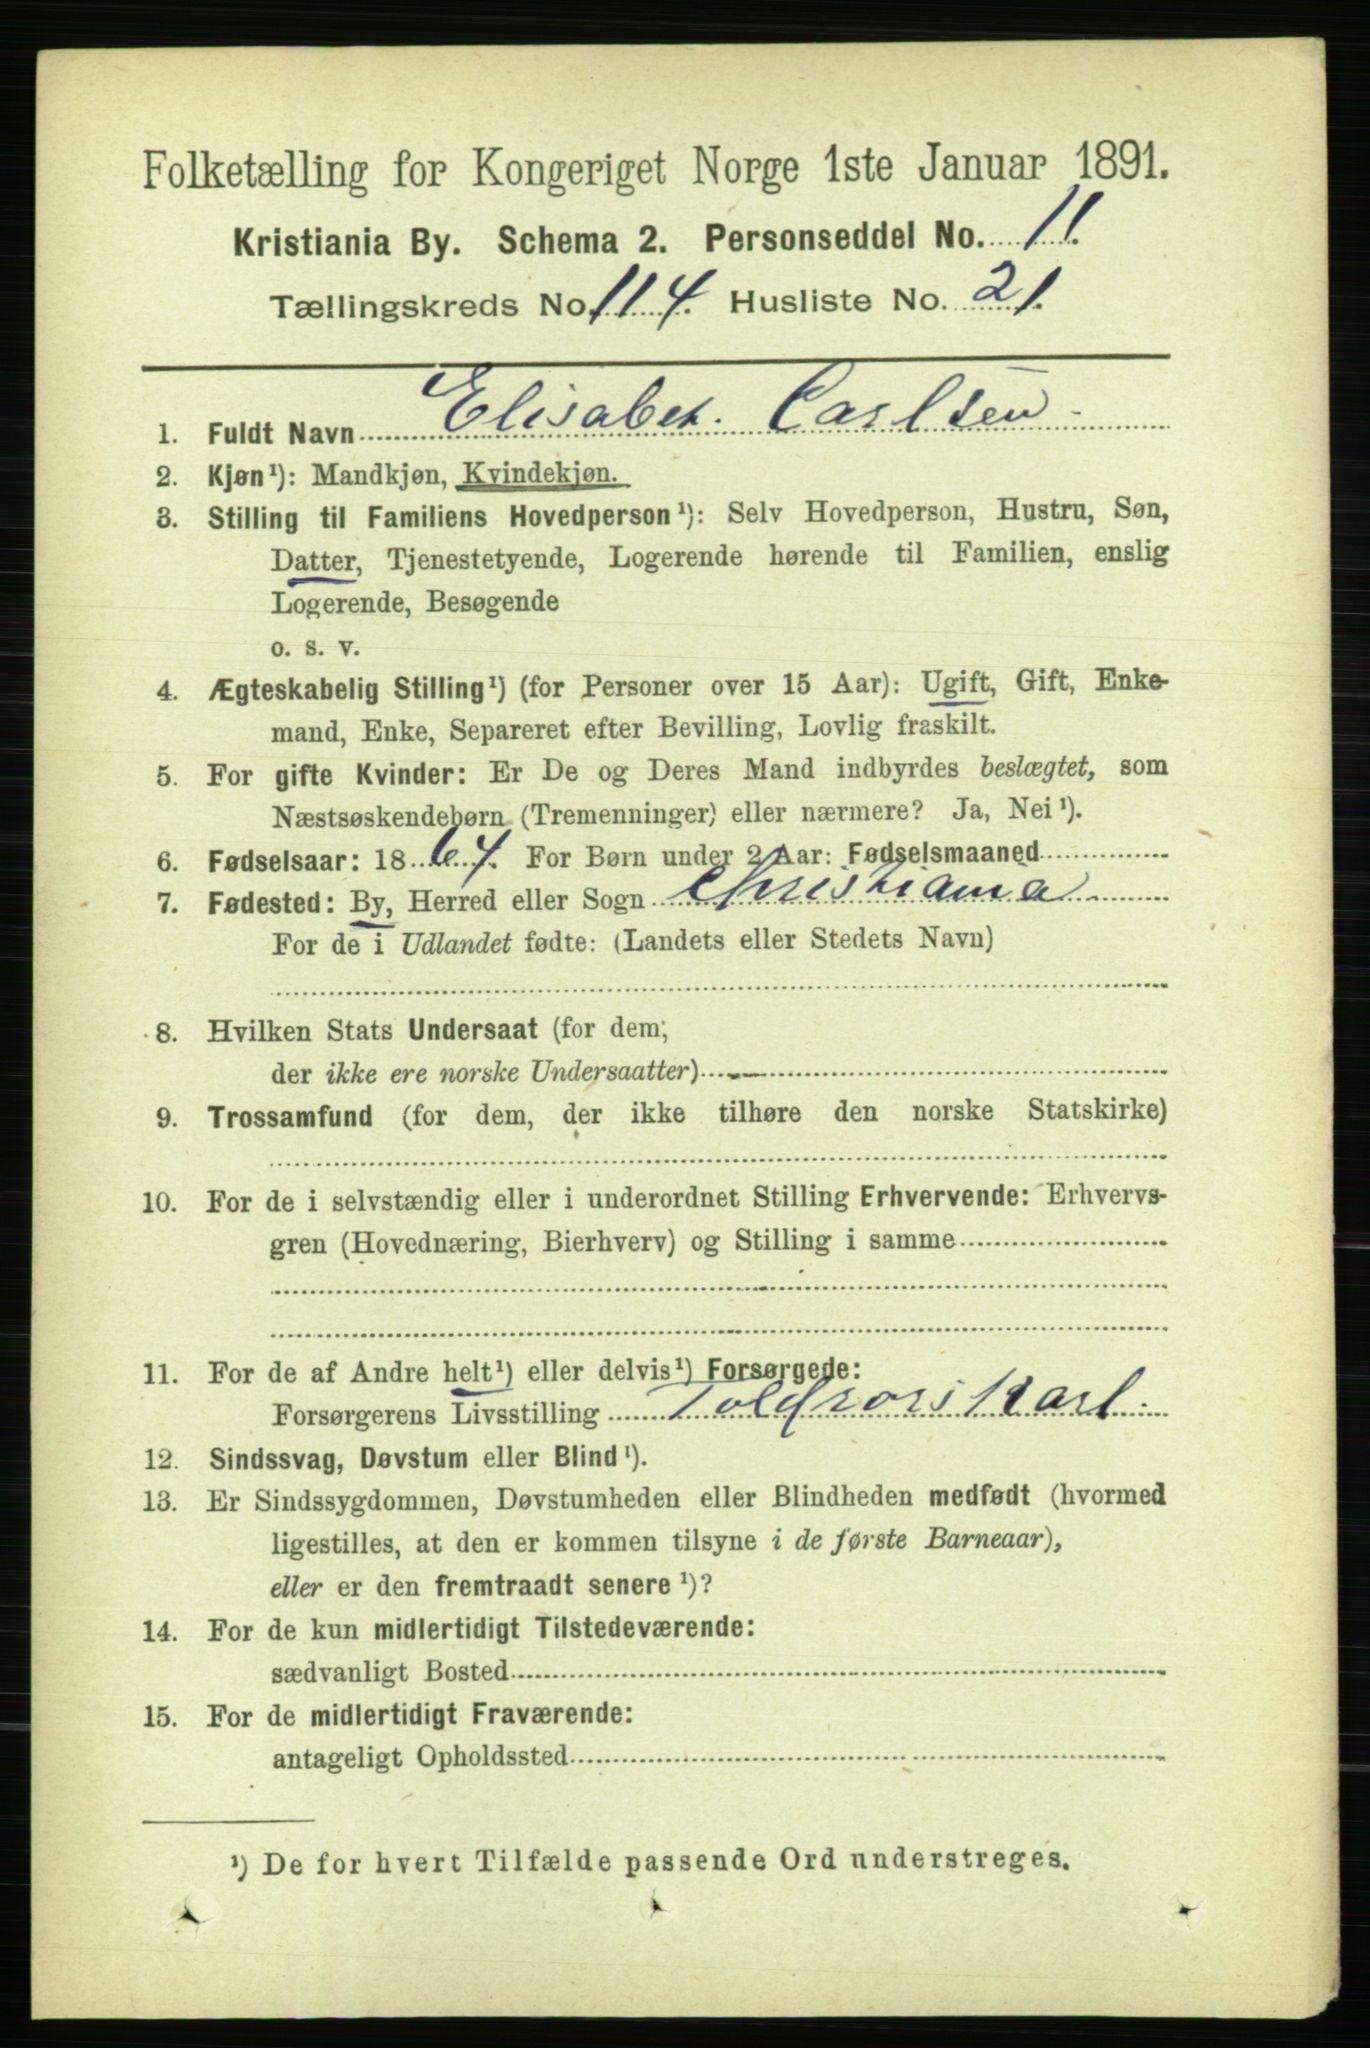 Folketælling for Kongeriget Norge 1ste Januar 1891.
Kristiania By. Schema 2. Personseddel No. 11.
Tællingskreds No. 114. Husliste No. 21.
1. Fuldt Navn Elisabet. Carlsen
2. Kjøn¹): Mandkjøn, Kvindekjøn.
3. Stilling til Familiens Hovedperson¹): Selv Hovedperson, Hustru, Søn,
Datter, Tjenestetyende, Logerende hørende til Familien, enslig
Logerende, Besøgende
o. s. v.
4. Ægteskabelig Stilling¹) (for Personer over 15 Aar): Ugift, Gift, Enke-
mand, Enke, Separeret efter Bevilling, Lovlig fraskilt.
5. For gifte Kvinder: Er De og Deres Mand indbyrdes beslægtet, som
Næstsøskendebørn (Tremenninger) eller nærmere? Ja, Nei¹).
6. Fødselsaar: 1864. For Børn under 2 Aar: Fødselsmaaned
7. Fødested: By, Herred eller Sogn Christiania
For de i Udlandet fødte: (Landets eller Stedets Navn)
8. Hvilken Stats Undersaat (for dem,
der ikke ere norske Undersaatter)
9. Trossamfund (for dem, der ikke tilhøre den norske Statskirke)
10. For de i selvstændig eller i underordnet Stilling Erhvervende: Erhvervs-
gren (Hovednæring, Bierhverv) og Stilling i samme
11. For de af Andre helt¹) eller delvis¹) Forsørgede:
Forsørgerens Livsstilling
12. Sindssvag, Døvstum eller Blind¹).
13. Er Sindssygdommen, Døvstumheden eller Blindheden medfødt (hvormed
ligestilles, at den er kommen tilsyne i de første Barneaar),
eller er den fremtraadt senere¹)?
14. For de kun midlertidigt Tilstedeværende:
sædvanligt Bosted
15. For de midlertidigt Fraværende:
antageligt Opholdssted
¹) De for hvert Tilfælde passende Ord understreges.